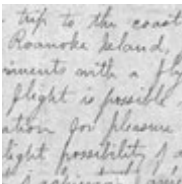 trip to the coast
Roanoke Island,
riments with a fly
flight is possible
ation for pleasure
light possibility of a